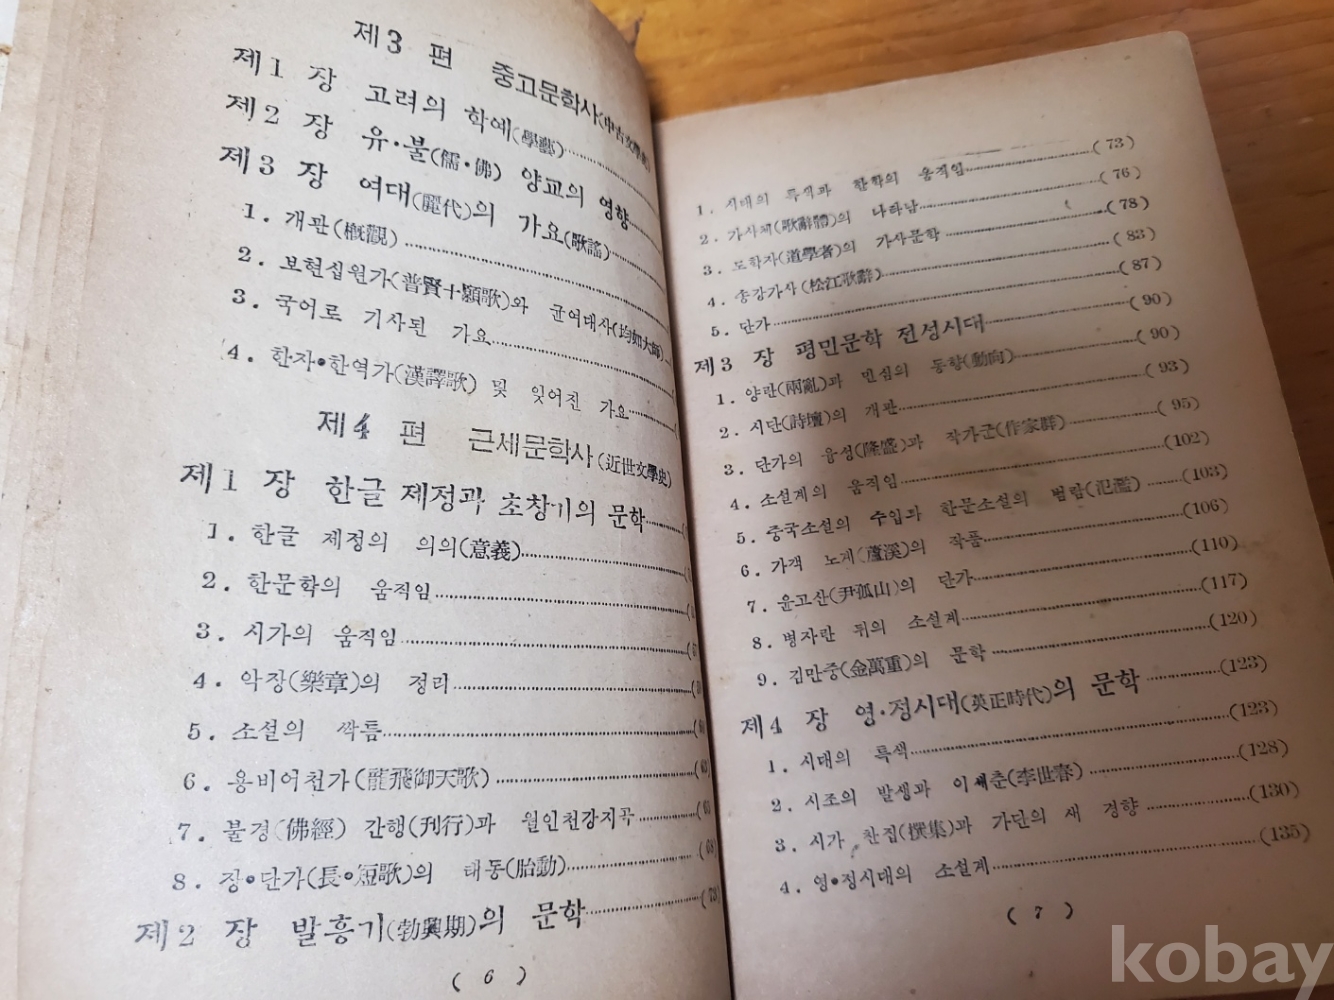 제3 편 중고문학사(中古文學史)
제1 장 고려의 학예(學藝)
제2 장 유·불(儒·佛) 양교의 영향
제3 장 여대(麗代)의 가요(歌謠)
1. 개관(槪觀)
2. 보현십원가(普賢十願歌)와 균여대사(均如大師)
3. 국어로 기사된 가요
4. 한자•한역가(漢譯歌) 및 잊어진 가요
제4 편 근세문학사(近世文學史)
제1 장 한글 제정과 초창기의 문학
1. 한글 제정의 의의(意義)
2. 한문학의 움직임
3. 시가의 움직임
4. 악장(樂章)의 정리
5. 소설의 싹틈
6. 용비어천가(龍飛御天歌)
7. 불경(佛經) 간행(刊行)과 월인천강지곡
8. 장•단가(長•短歌)의 태동(胎動) (68)
제2 장 발흥기(勃興期)의 문학 (73)
( 6 )
1. 시대의 특색과 한학의 움직임 (73)
2. 가사체(歌辭體)의 나타남 (76)
3. 도학자(道學者)의 가사문학 (78)
4. 송강가사(松江歌辭) (83)
5. 단가 (87)
제3 장 평민문학 전성시대 (90)
1. 양란(兩亂)과 민심의 동향(動向) (90)
2. 시단(詩壇)의 개관 (93)
3. 단가의 융성(隆盛)과 작가군(作家群) (95)
4. 소설계의 움직임 (102)
5. 중국소설의 수입과 한문소설의 범람(氾濫) (103)
6. 가객 노계(蘆溪)의 작품 (106)
7. 윤고산(尹孤山)의 단가 (110)
8. 병자란 뒤의 소설계 (117)
9. 김만중(金萬重)의 문학 (120)
제4 장 영·정시대(英正時代)의 문학 (123)
1. 시대의 특색 (123)
2. 시조의 발생과 이세춘(李世春) (128)
3. 시가 찬집(撰集)과 가단의 새 경향 (130)
4. 영•정시대의 소설계 (135)
( 7 )
kobay